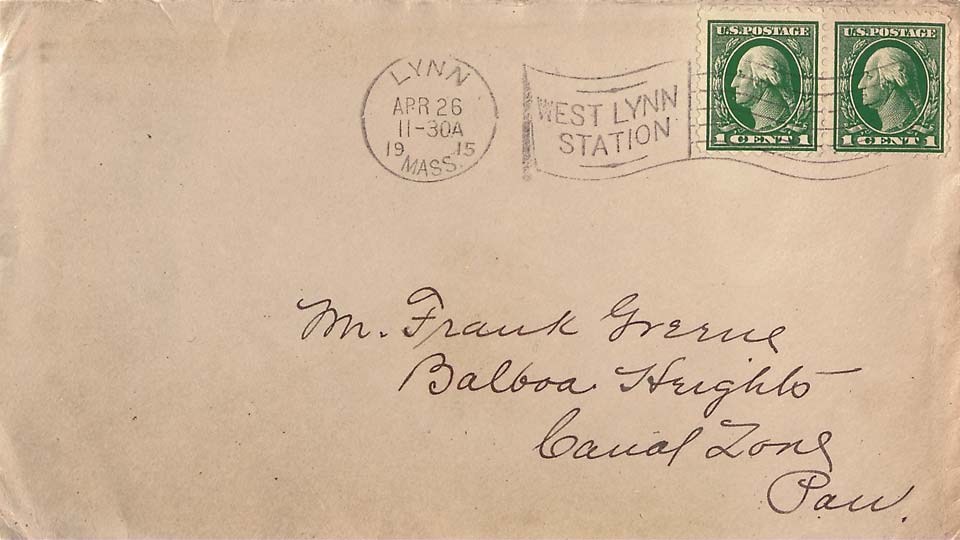 U.S. POSTAGE
1 CENT 1
U.S. POSTAGE
1 CENT 1
LYNN
APR 26
11-30A
19 15
MASS.
WEST LYNN
STATION
Mr. Frank Greene
Balboa Heights
Canal Zone
Pan.